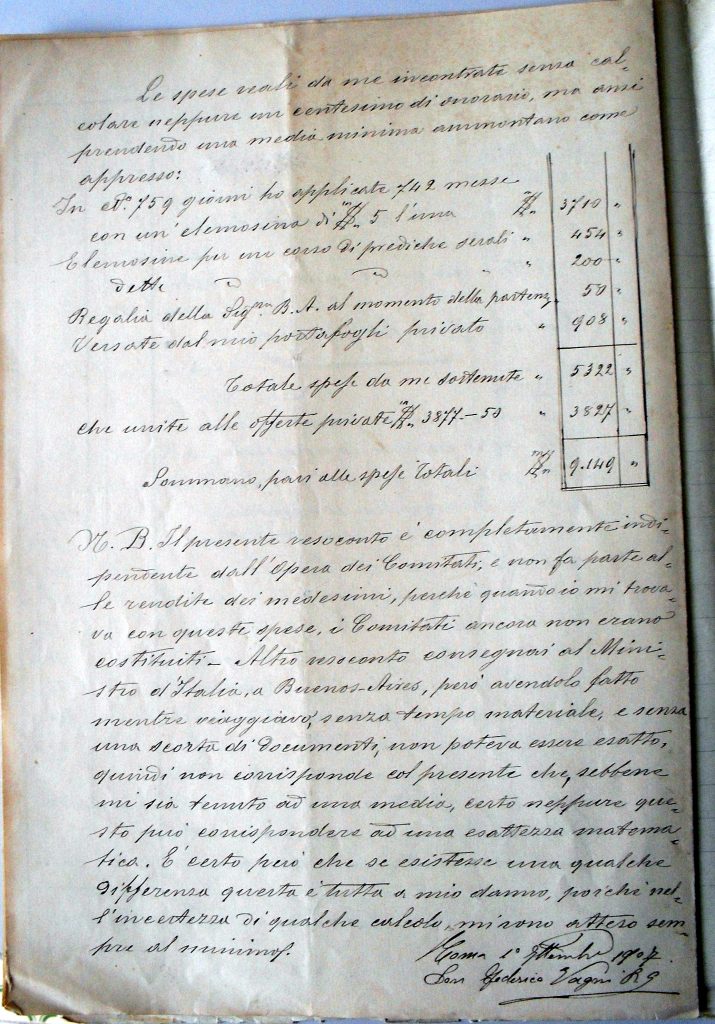 Le spese reali da me incontrate senza cal-
colare neppure un centesimo di onorario, ma anzi
prendendo una media minima ammontano come
appresso:
In 759 giorni ho applicate 742 messe
con un' elemosina di 5 l'una 3710 "
Elemosine per un corso di prediche serali " 454 "
dette " " " " 200 "
Regalia della Sig.ra B. A. al momento della partenz. 50 "
Versate dal mio portafogli privato " 908 "
Totale spese da me sostenute " 5322 "
che unite alle offerte private 3877.-50 " 3827 "
Sommano, pari alle spese totali 9.149 "
N. B. Il presente resoconto é completamente indi-
pendente dall'Opera dei Comitati, e non fa parte al-
le rendite dei medesimi, perché quando io mi trova-
va con queste spese, i Comitati ancora non erano
costituiti - Altro resoconto consegnai al Mini-
stro d'Italia, a Buenos-Aires, peró avendolo fatto
mentre viaggiavo, senza tempo materiale, e senza
una scorta di documenti, non poteva essere esatto,
quindi non corrisponde col presente che, sebbene
mi sia tenuto ad una media, certo neppure que-
sto puó corrispondere ad una esattezza matema-
tica. É certo peró che se esistesse una qualche
differenza questa é tutta a mio danno, poiché nel-
l'incertezza di qualche calcolo, mi sono atteso sem-
pre al minimo.
Roma 1° Settembre 1907.
Don Federico Vagni